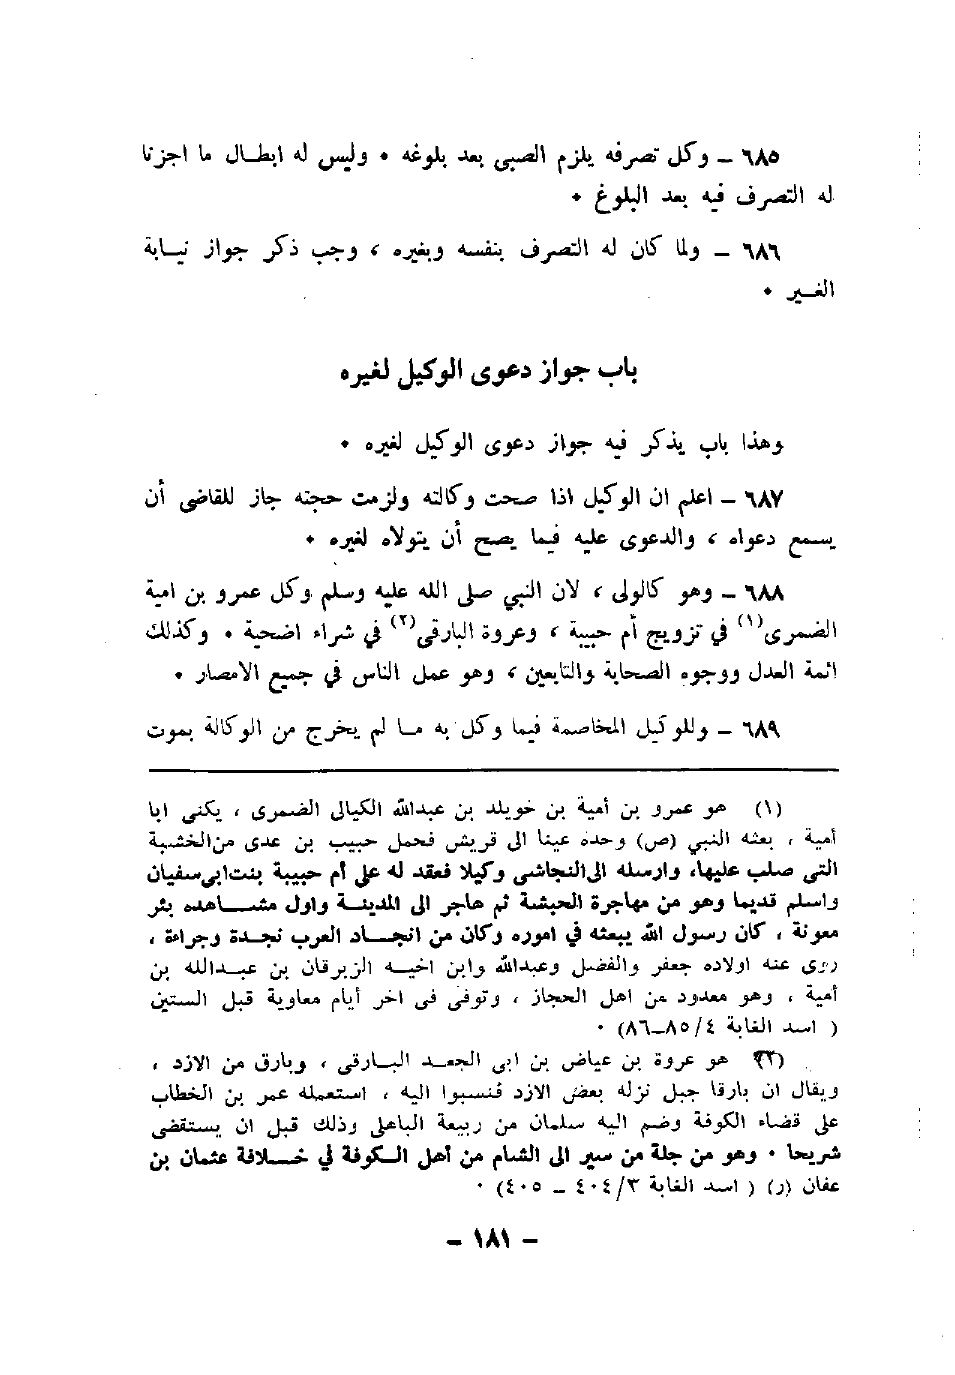 ٦٨٥ ــ وكل تصرفه يلزم الصبي بعد بلوغه • وليس له ابطـال ما اجزنا
له التصرف فيه بعد البلوغ •
٦٨٦ ــ ولما كان له التصرف بنفسه وبغيره ، وجب ذكر جواز نيـابة
الغـير •
باب جواز دعوى الوكيل لغيره
وهذا باب يذكر فيه جواز دعوى الوكيل لغيره •
٦٨٧ ــ اعلم ان الوكيل اذا صحت وكالته ولزمت حجته جاز للقاضي أن
يسمع دعواه ، والدعوى عليه فيما يصح أن يتولاه لغيره •
٦٨٨ ــ وهو كالولى ، لان النبي صلى الله عليه وسلم وكل عمرو بن امية
الضمرى(١) في تزويج أم حبيبة ، وعروة البارقي(٢) في شراء اضحية • وكذلك
ائمة العدل ووجوه الصحابة والتابعين ، وهو عمل الناس في جميع الامصار •
٦٨٩ ــ وللوكيل المخاصمة فيما وكل به مـا لم يخرج من الوكالة بموت
(١) هو عمرو بن أمية بن خويلد بن عبدالله الكيالى الضمرى ، يكنى ابا
أمية ، بعثه النبي (ص) وحده عينا الى قريش فحمل حبيب بن عدى من الخشبة
التى صلب عليها، وارسله الى النجاشى وكيلا فعقد له على أم حبيبة بنت ابى سفيان
واسلم قديما وهو من مهاجرة الحبشة ثم هاجر الى المدينـة واول مشـاهده بئر
معونة ، كان رسول الله يبعثه في اموره وكان من انجـاد العرب نجـدة وجراءة ،
روى عنه اولاده جعفر والفضل وعبدالله وابن اخيـه الزبرقان بن عبـدالله بن
أمية ، وهو معدود من اهل الحجاز ، وتوفى فى اخر أيام معاوية قبل الستين
( اسد الغابة ٤/ ٨٥ــ٨٦) •
(٢) هو عروة بن عياض بن ابى الجعـد البـارقى ، وبارق من الازد ،
ويقال ان بارقا جبل نزله بعض الازد فنسبوا اليه ، استعمله عمر بن الخطاب
على قضاء الكوفة وضم اليه سلمان من ربيعة الباهلى وذلك قبل ان يستقضى
شريحا • وهو من جلة من سير الى الشام من أهل الـكوفة في خـلافة عثمان بن
عفان (ر) ( اسد الغابة ٣/ ٤٠٤ ــ ٤٠٥) •
ــ ١٨١ ــ